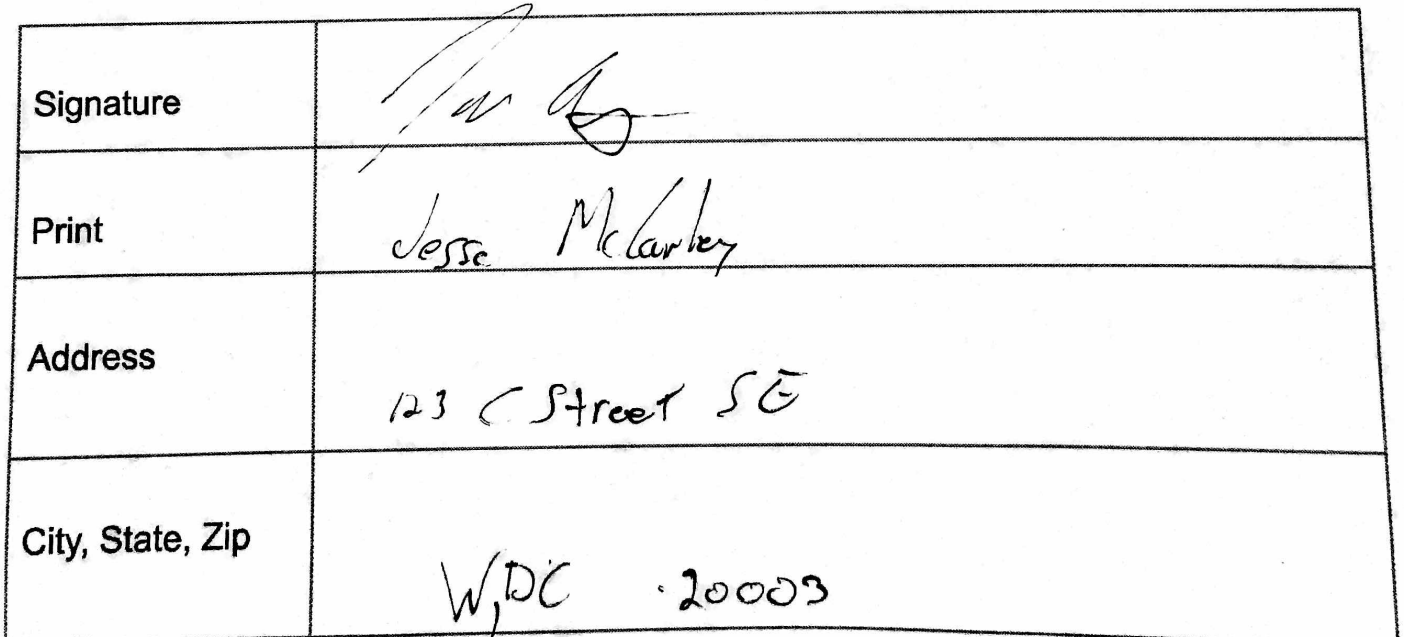 Signature
Print Jesse McCarley
Address
123 C Street SE
City, State, Zip
W, DC 20003